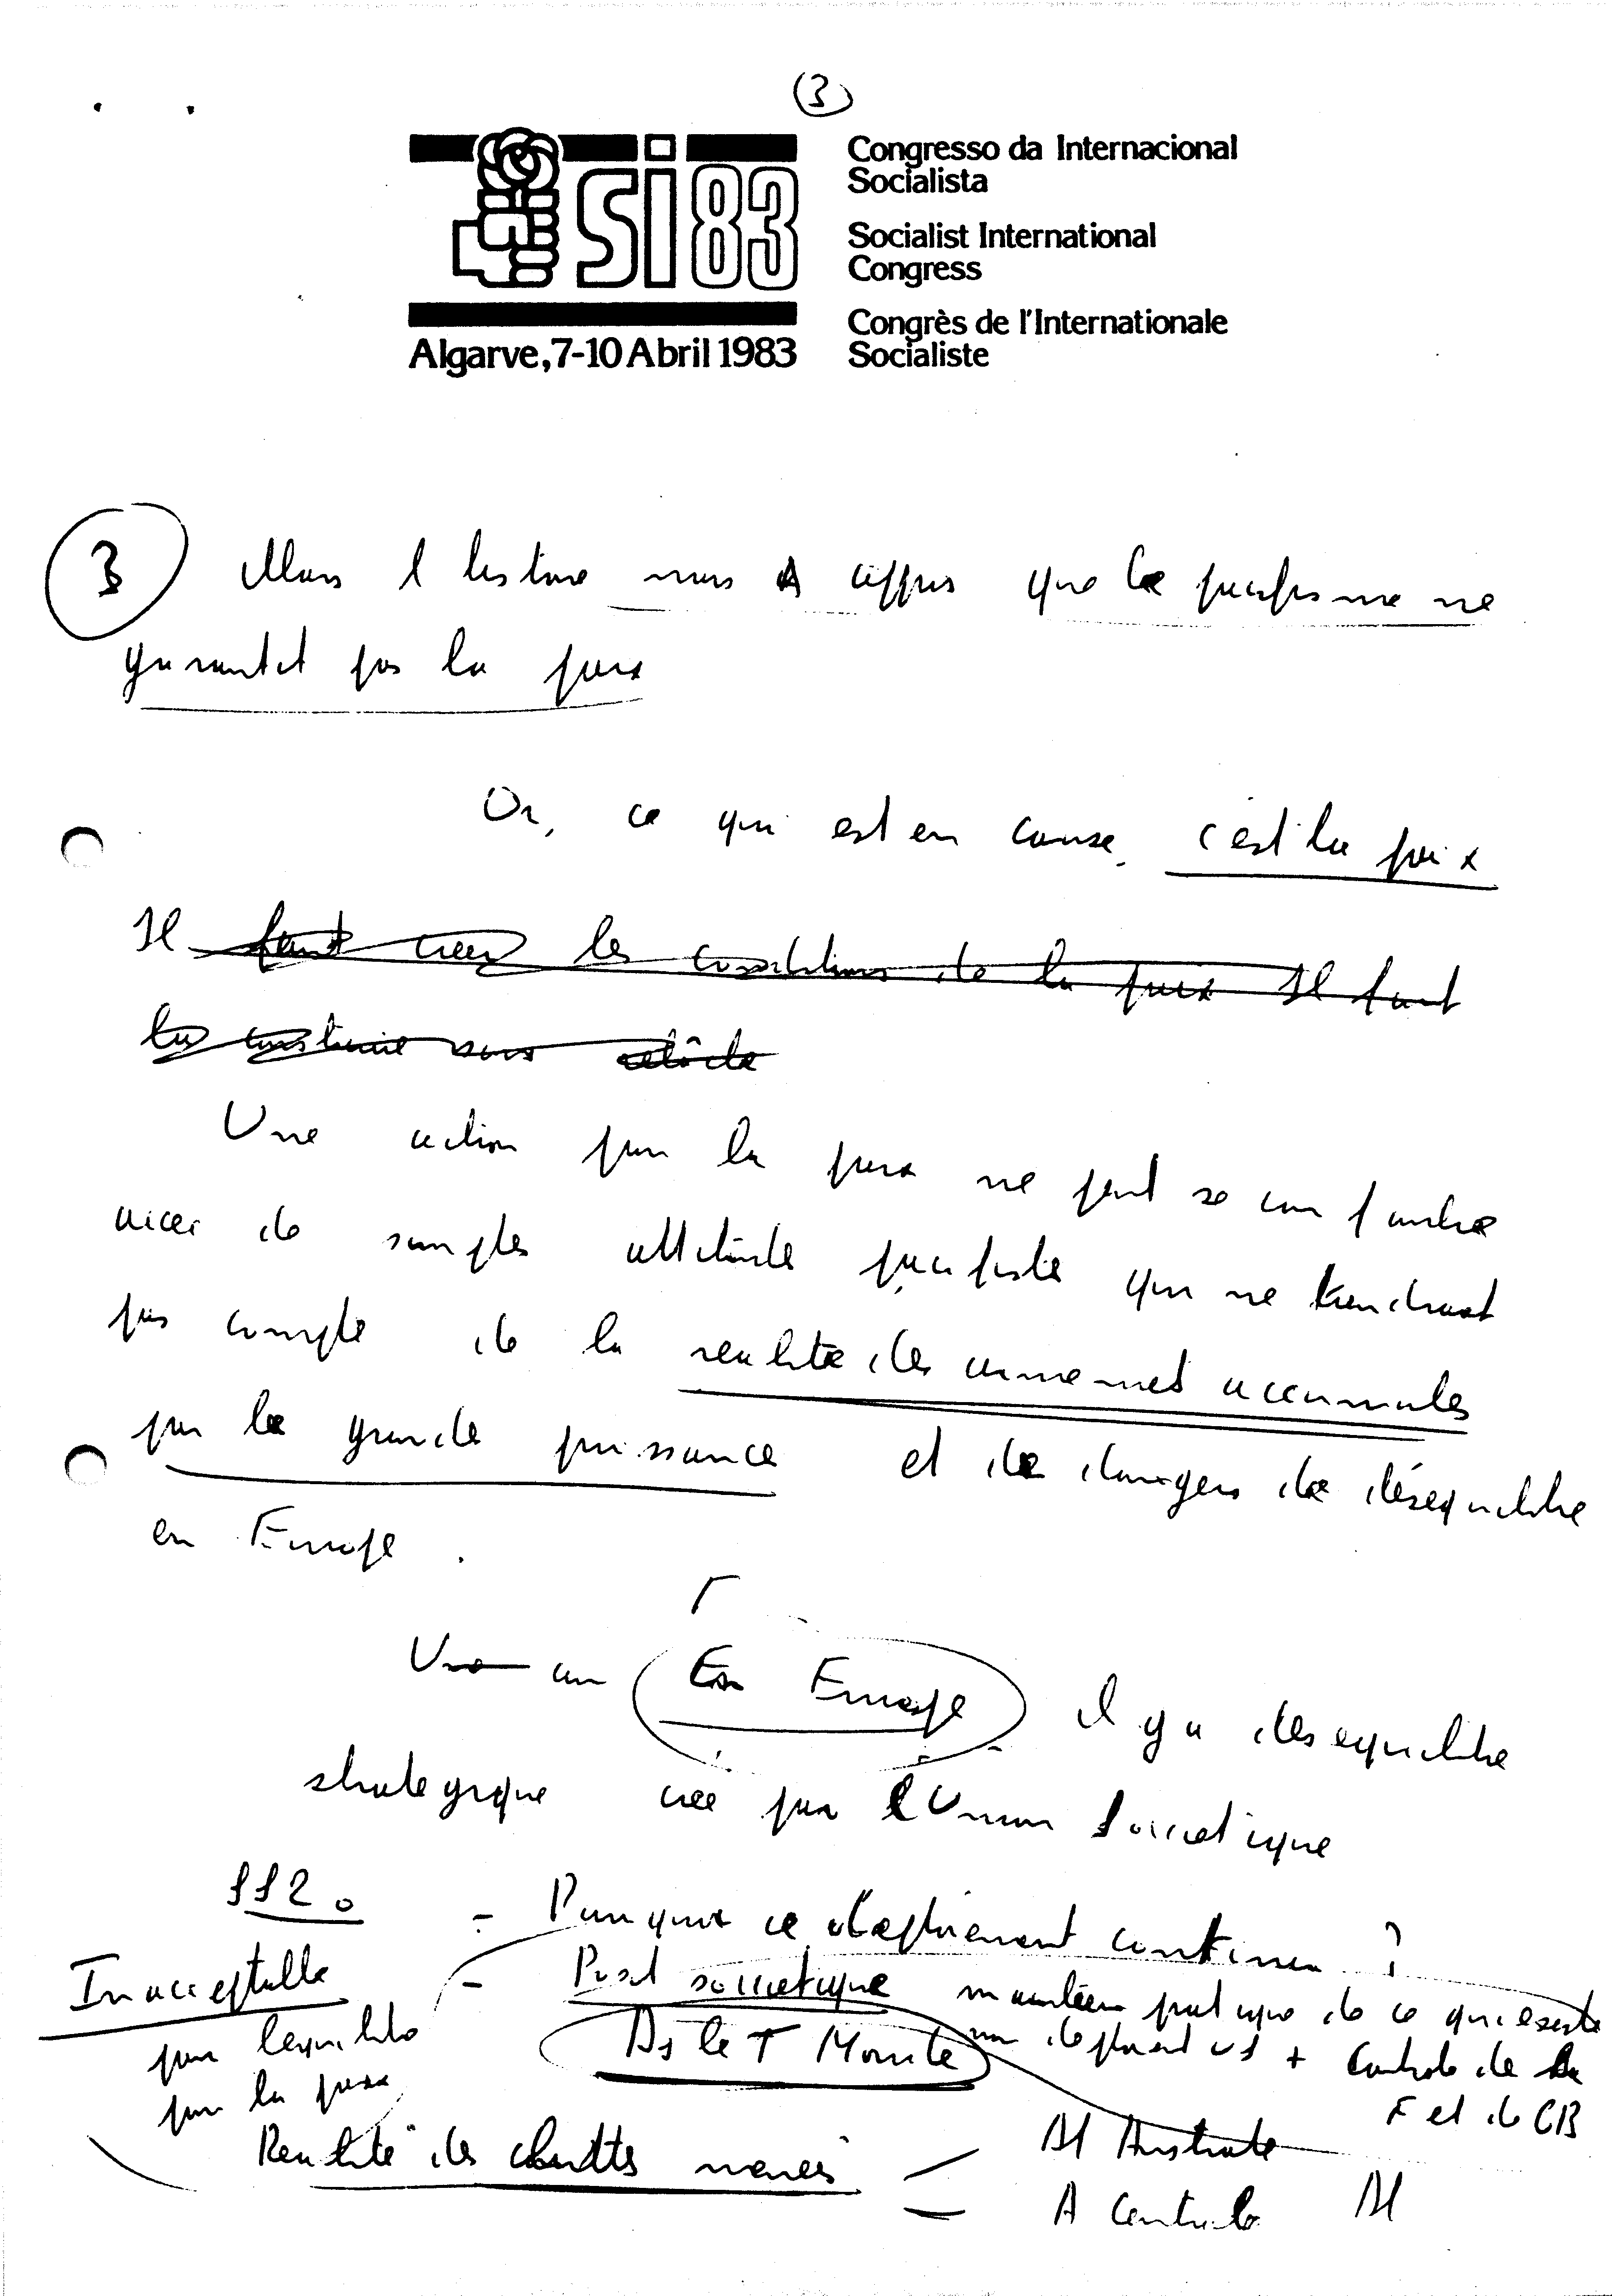 (3)
SI 83
Algarve, 7-10 Abril 1983
Congresso da Internacional
Socialista
Socialist International
Congress
Congrès de l'Internationale
Socialiste
3 Mais l histoire nous a appris que le pacifisme ne
garantit pas la paix
Or, ce qui est en cause, c'est la paix
Il faut créer les conditions de la paix Il faut
la construire sans relâche
Une action pour la paix ne peut se confondre
avec de simples attitudes pacifistes qui ne tiendraient
pas compte de la realité des armements accumulés
par les grandes puissances et des dangers de déséquilibre
en Europe.
Une En Europe il y a desequilibre
strategique créé par l'Union Sovietique
SS20
- Pourquoi ce deploiement continu ?
Inacceptable
pour l'equilibre
pour la paix
- Posit sovietique maintien pratique de ce qui existe
non deploiement US + Controle de la
F et de GB
Ds le T Monde
Realité des menées
A Australe
A Centrale